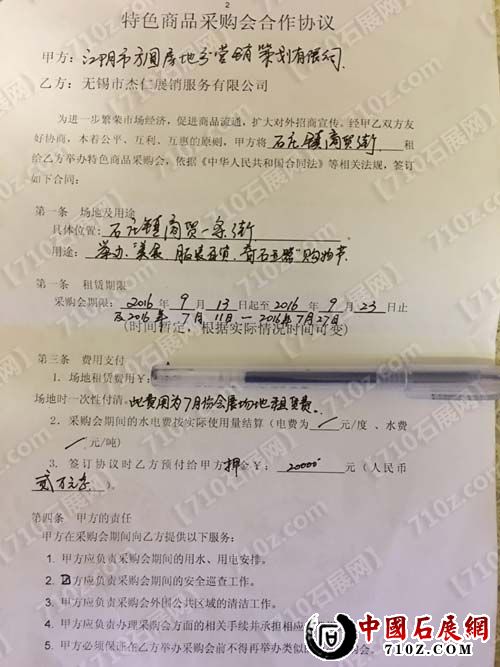 2
特色商品采购会合作协议
甲方：江阴市方圆房地产营销策划有限公司
乙方：无锡市杰仁展销服务有限公司
为进一步繁荣市场经济，促进商品流通，扩大对外招商宣传。经甲乙双方友
好协商，本着公平、互利、互惠的原则，甲方将 石庄镇商贸街 租
给乙方举办特色商品采购会，依据《中华人民共和国合同法》等相关法规，签订
如下合同：
第一条 场地及用途
具体位置：石庄镇商贸一条街
用途：举办“美食 服装百货、奇石玉器”购物节
第一条 租赁期限
采购会期限：2016 年 9 月 13 日起至 2016 年 9 月 23 日止
及2016年 7月11日—2016年7月27日
(时间暂定，根据实际情况时间可变)
第三条 费用支付
1. 场地租赁费用¥：
场地时一次性付清。此费用为7月份会展场地租赁费。
2. 采购会期间的水电费按实际使用量结算（电费为 / 元/度 、水费
/ 元/吨）
3. 签订协议时乙方预付给甲方押金¥：20000 元（人民币
贰万元整）。
第四条 甲方的责任
甲方在采购会期间向乙方提供以下服务：
1. 甲方应负责采购会期间的用水、用电安排。
2. 方应负责采购会期间的安全巡查工作。
3. 甲方应负责采购会外围公共区域的清洁工作。
4. 甲方应负责办理采购会方面的相关手续并承担相应
5. 甲方必须保证在乙方举办采购会前不得再举办类似的
【710z.com 石展网】
中國石展網
710Z.COM